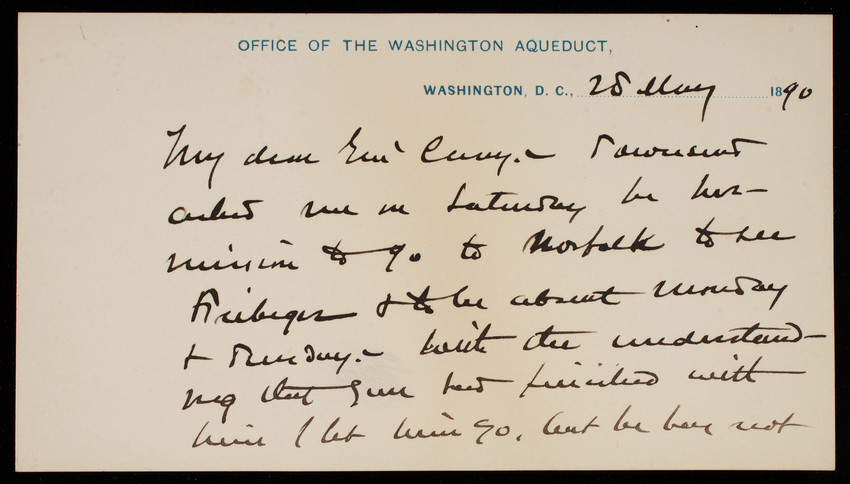 OFFICE OF THE WASHINGTON AQUEDUCT,
WASHINGTON, D. C., 28 May 1890
My dear Gen' Casey. - Townsend
asked me on Saturday for per-
mission to go to Norfolk to see
& to be absent Monday
& Tuesday. - With the understand-
ing that you had finished with
him I let him go, but he has not